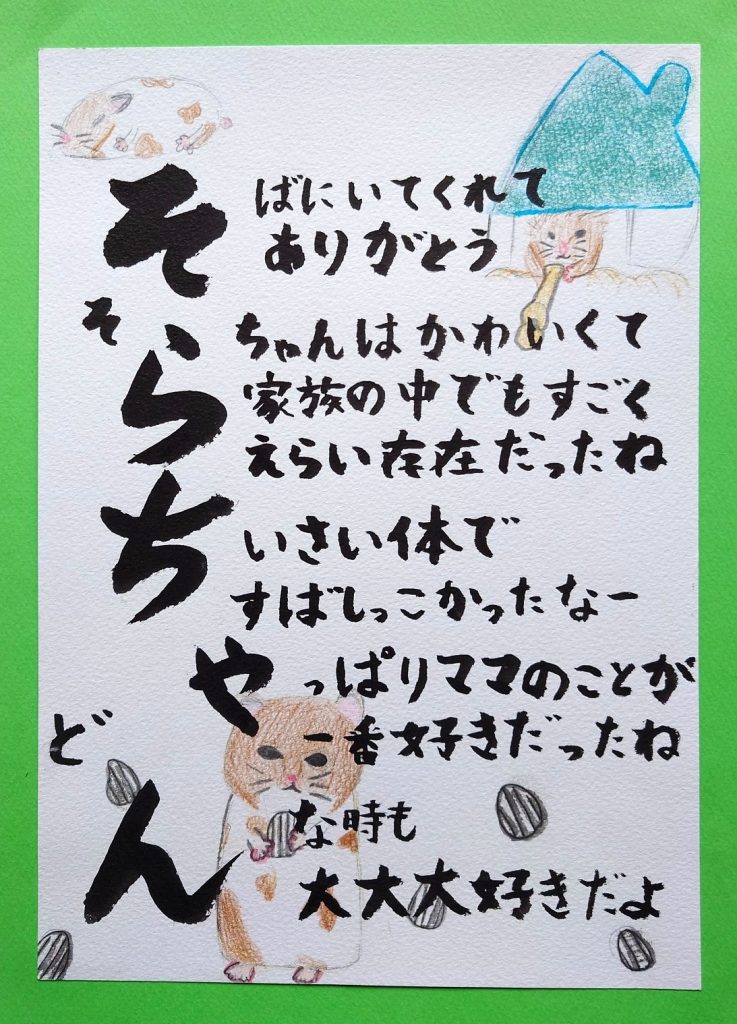 そばにいてくれて
ありがとう
そらちゃんはかわいくて
家族の中でもすごく
えらい存在だったね
ちいさい体で
すばしっこかったなー
やっぱりママのことが
一番好きだったね
どんな時も
大大大好きだよ